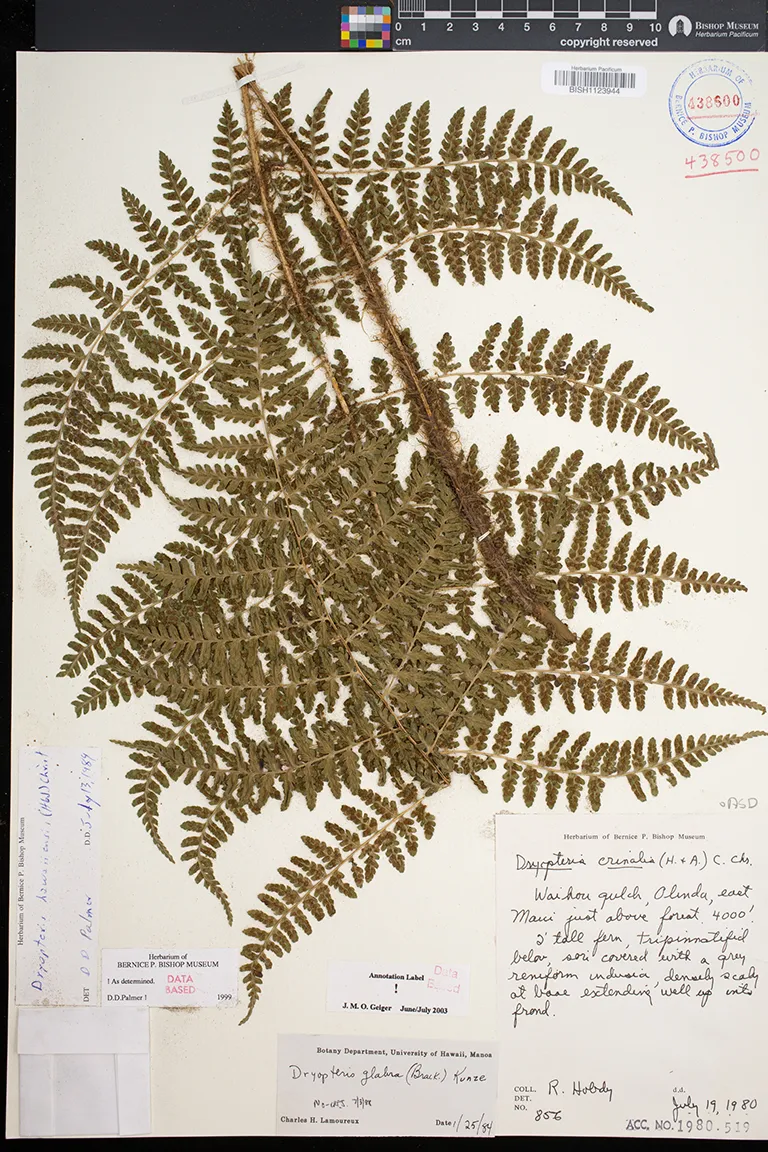 0 1 2 3 4 5 6 7 8 9 10
cm
copyright reserved
BISHOP MUSEUM
Herbarium Pacificum
Herbarium Pacificum
BISH1123944
HERBARIUM OF
438600
BERNICE P. BISHOP MUSEUM
438500
Herbarium of Bernice P. Bishop Museum
Dryopteris hawaiiensis (Hbd) Christ
DET D D Palmer D.D. July 13, 1989
Herbarium of
BERNICE P. BISHOP MUSEUM
! As determined.
DATA
BASED
D.D.Palmer ! 1999
Annotation Label
!
Data
Based
J. M. O. Geiger June/July 2003
Botany Department, University of Hawaii, Manoa
Dryopteris glabra (Brack.) Kunze
Charles H. Lamoureux Date 1/25/84
Herbarium of Bernice P. Bishop Museum
Dryopteris crinalis (H. & A.) C. Chr.
Waihou gulch, Olinda, east
Maui just above forest. 4000'
2' tall fern, tripinnatifid
below, sori covered with a grey
reniform indusia, densely scaly
at base extending well up into
frond.
COLL. R. Hobdy d.d.
DET. July 19, 1980
NO. 856
ACC. NO. 1980.519